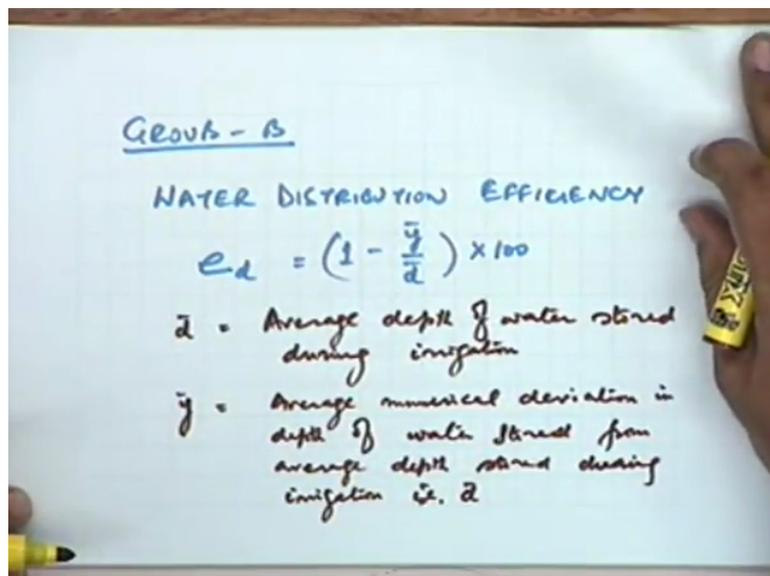 GROUP - B
WATER DISTRIBUTION EFFICIENCY
e_d = (1 - ȳ/d̄) × 100
d̄ = Average depth of water stored
during irrigation
ȳ = Average numerical deviation in
depth of water stored from
average depth stored during
irrigation i.e. d̄